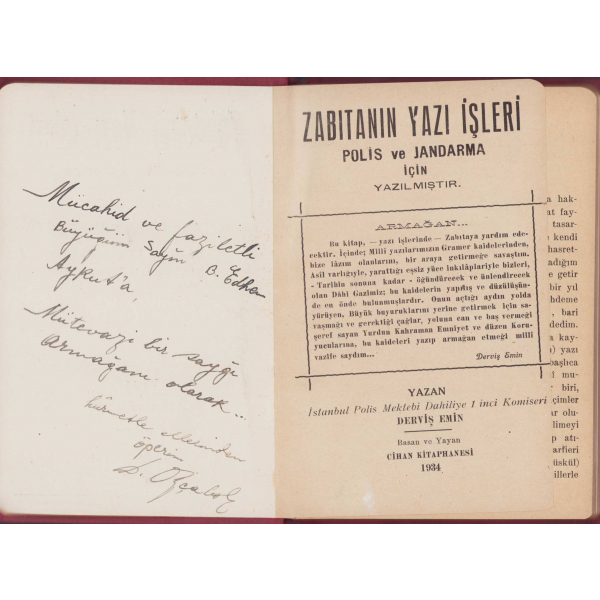 Mücahid ve faziletli
Büyüğüm Sayın B. Edhem
Aykut'a,
Mütevazi bir saygı
armağanı olarak..
hürmetle ellerinden
öperim
D. Özçabol
ZABITANIN YAZI İŞLERİ
POLİS ve JANDARMA
İÇİN
YAZILMIŞTIR.
ARMAĞAN...
Bu kitap, — yazı işlerinde — Zabıtaya yardım ede-
cektir. İçinde; Millî yazılarımızın Gramer kaidelerinden,
bize lâzım olanlarını, bir araya getirmeğe savaştım.
Asil varlığıyle, yarattığı eşsiz yüce inkılâplariyle bizleri,
- Tarihin sonuna kadar - öğündürecek ve ünlendirecek
olan Dâhi Gazimiz; bu kaidelerin yapılış ve düzülüşün-
de en önde bulunmuşlardır. Onun açtığı aydın yolda
yürüyen, Büyük buyuruklarını yerine getirmek için sa-
vaşmağı ve gerektiği çağlar, yoluna can ve baş vermeği
şeref sayan Yurdun Kahraman Emniyet ve düzen Koru-
yucularına, bu kaideleri yazıp armağan etmeği millî
vazife saydım...
Derviş Emin
YAZAN
İstanbul Polis Mektebi Dahiliye 1 inci Komiseri
DERVİŞ EMİN
Basan ve Yayan
CİHAN KİTAPHANESİ
1934
a hak-
at fay-
tasar-
kendi
hasret-
adığım
e getir
bir yıl
hdeme
bari
dedim.
a kay-
ı) yazı
başlıca
l mu-
biri,
çimler
ar olu-
limeyi
p atı-
arfieri
üskül)
illerle